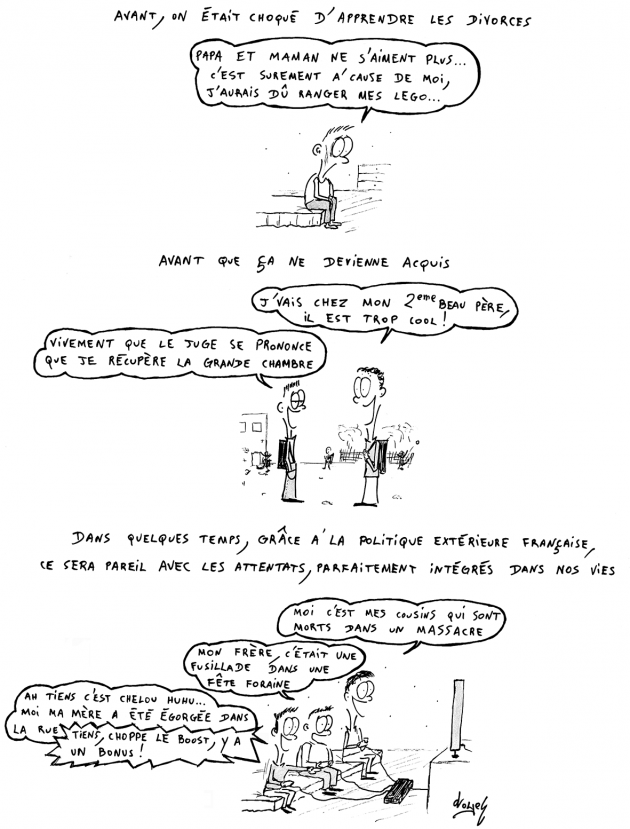 AVANT, ON ÉTAIT CHOQUÉ D'APPRENDRE LES DIVORCES
PAPA ET MAMAN NE S'AIMENT PLUS...
C'EST SUREMENT A' CAUSE DE MOI,
J'AURAIS DÛ RANGER MES LEGO...
AVANT QUE ÇA NE DEVIENNE ACQUIS
J'VAIS CHEZ MON 2eme BEAU PÈRE,
IL EST TROP COOL !
VIVEMENT QUE LE JUGE SE PRONONCE
QUE JE RÉCUPÈRE LA GRANDE CHAMBRE
DANS QUELQUES TEMPS, GRÂCE A' LA POLITIQUE EXTÉRIEURE FRANÇAISE,
CE SERA PAREIL AVEC LES ATTENTATS, PARFAITEMENT INTÉGRÉS DANS NOS VIES
MOI C'EST MES COUSINS QUI SONT
MORTS DANS UN MASSACRE
MON FRÈRE, C'ÉTAIT UNE
FUSILLADE DANS UNE
FÊTE FORAINE
AH TIENS C'EST CHELOU HUHU...
MOI MA MÈRE A ÉTÉ ÉGORGÉE DANS
LA RUE
TIENS, CHOPPE LE BOOST, Y A
UN BONUS !